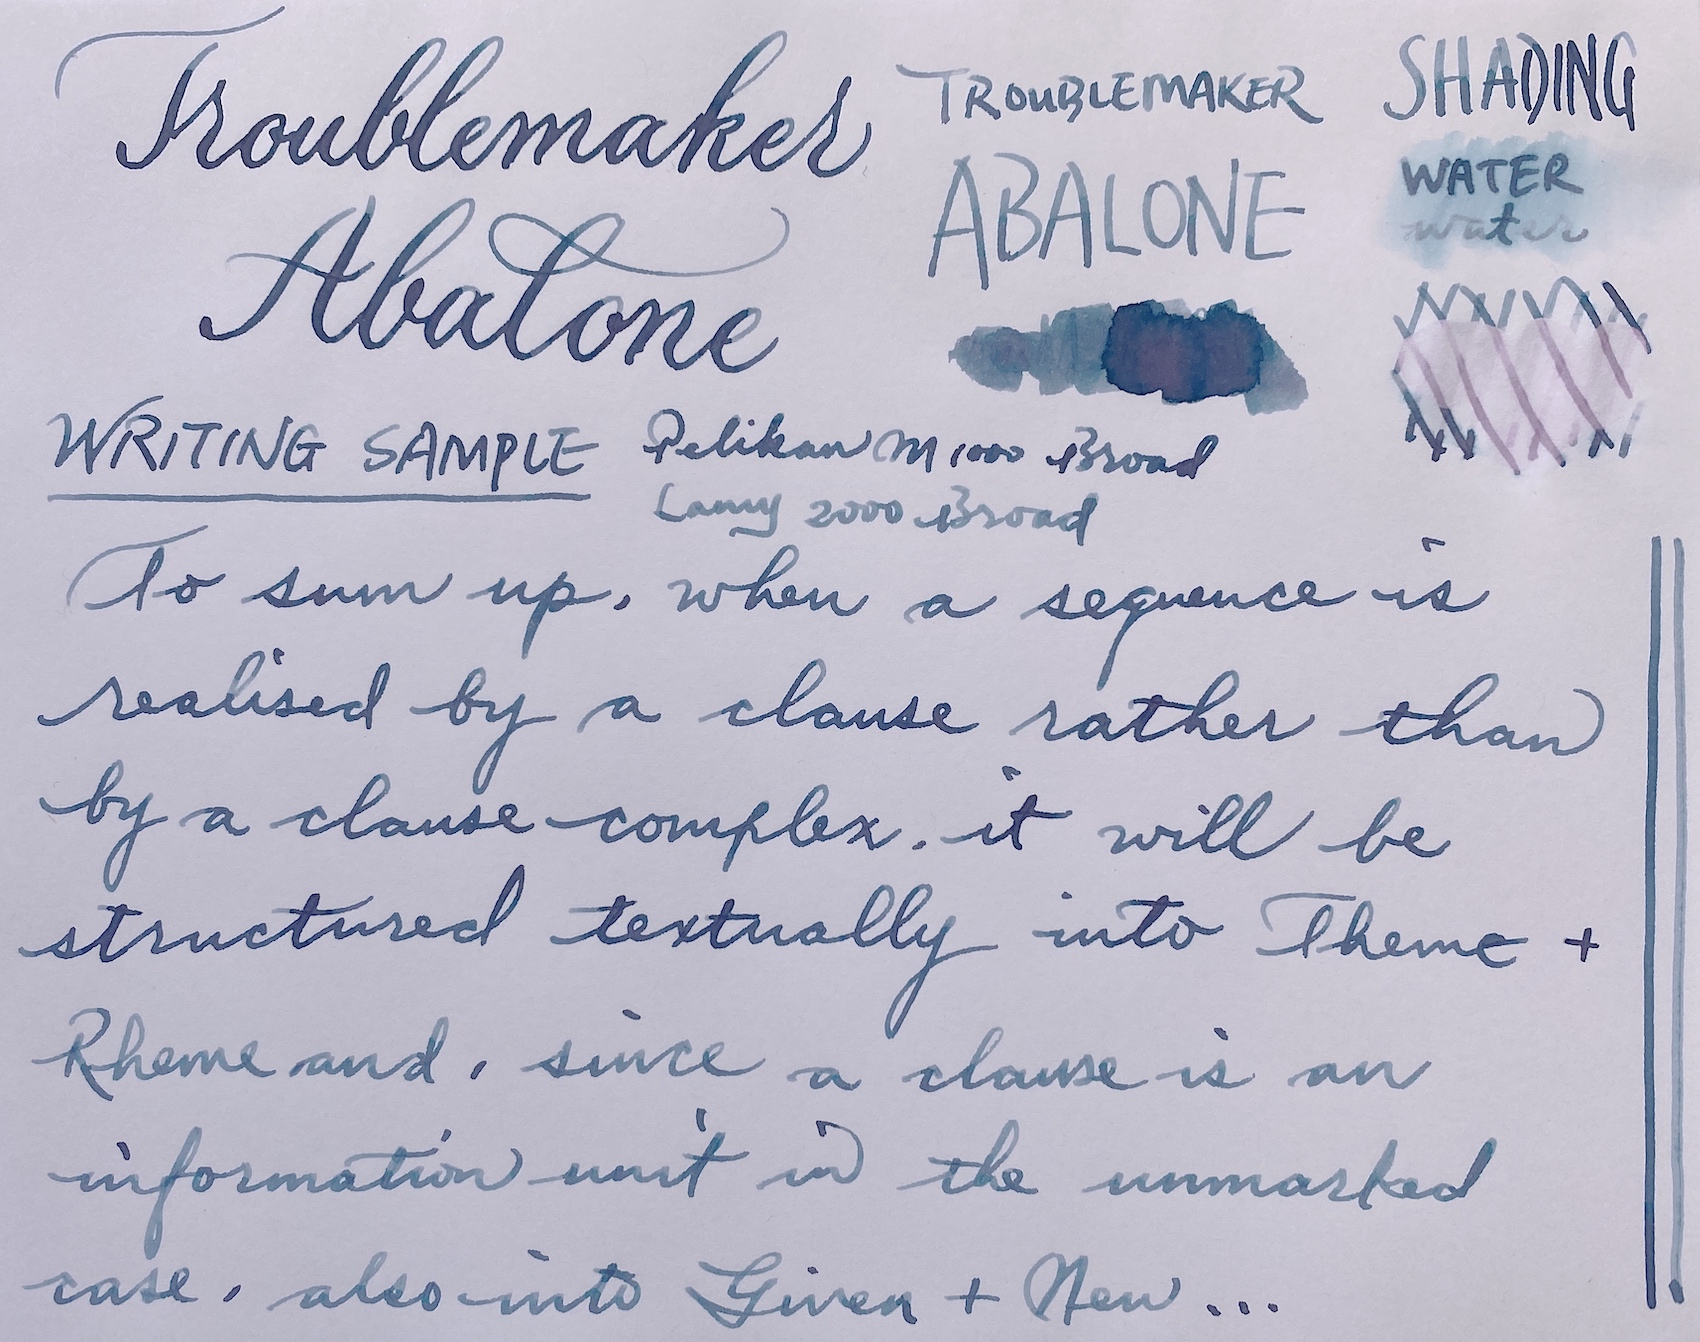 Troublemaker
Abalone
TROUBLEMAKER
ABALONE
SHADING
WATER
water
WRITING SAMPLE
Pelikan M1000 Broad
Lamy 2000 Broad
To sum up, when a sequence is
realised by a clause rather than
by a clause complex, it will be
structured textually into Theme +
Rheme and, since a clause is an
information unit in the unmarked
case, also into Given + New...